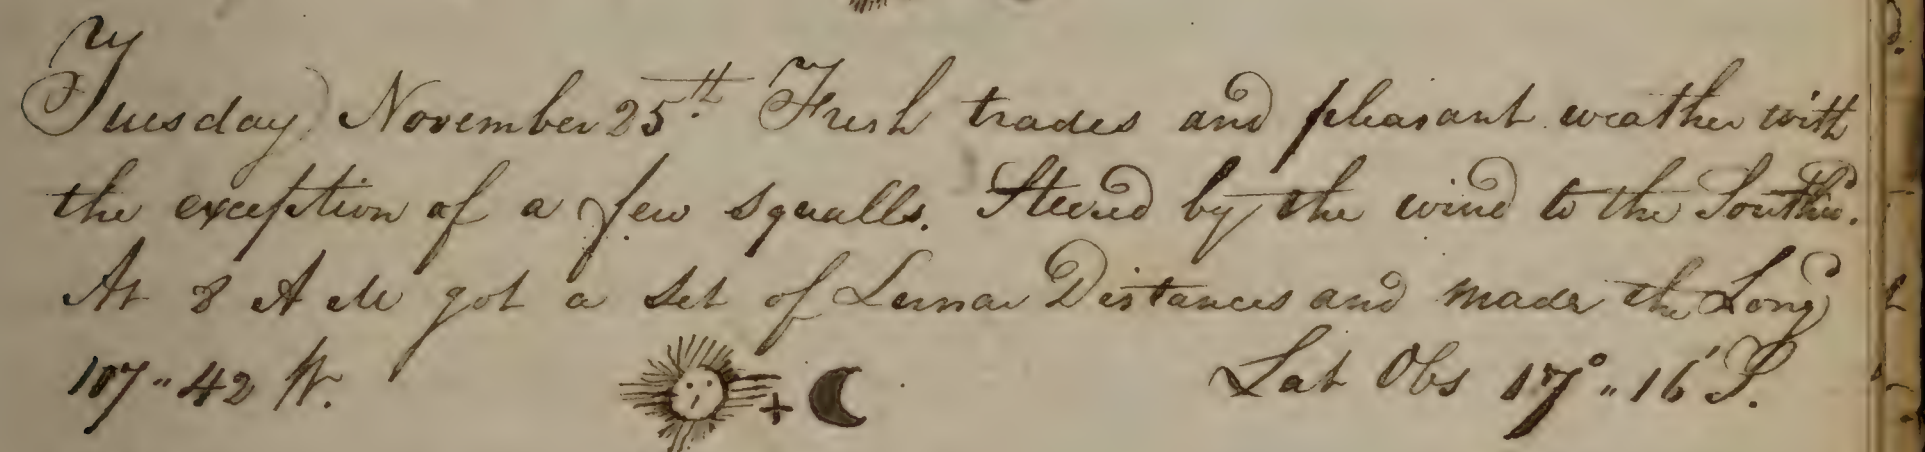 Tuesday November 25th. Fresh trades and pleasant weather with
the exception of a few squalls. Steered by the wind to the Southd.
At 8 A M got a set of Lunar Distances and made the Long
107" 42 W. + Lat Obs 17°" 16' S.